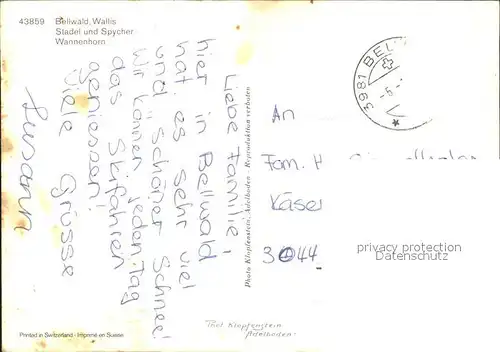 43859 Bellwald, Wallis
Stadel und Spycher
Wannenhorn
Liebe Familie!
hier in Bellwald
hat es sehr viel
und schöner Schnee!
Wir können jeden Tag
das Skifahren
geniessen!
Viele Grüsse
Susann
Photo Klopfenstein, Adelboden - Reproduktion verboten
3981 BEL
An
Fam. H
Käser
3044
privacy protection
Datenschutz
Phot Klopfenstein
Adelboden
Printed in Switzerland - Imprimé en Suisse